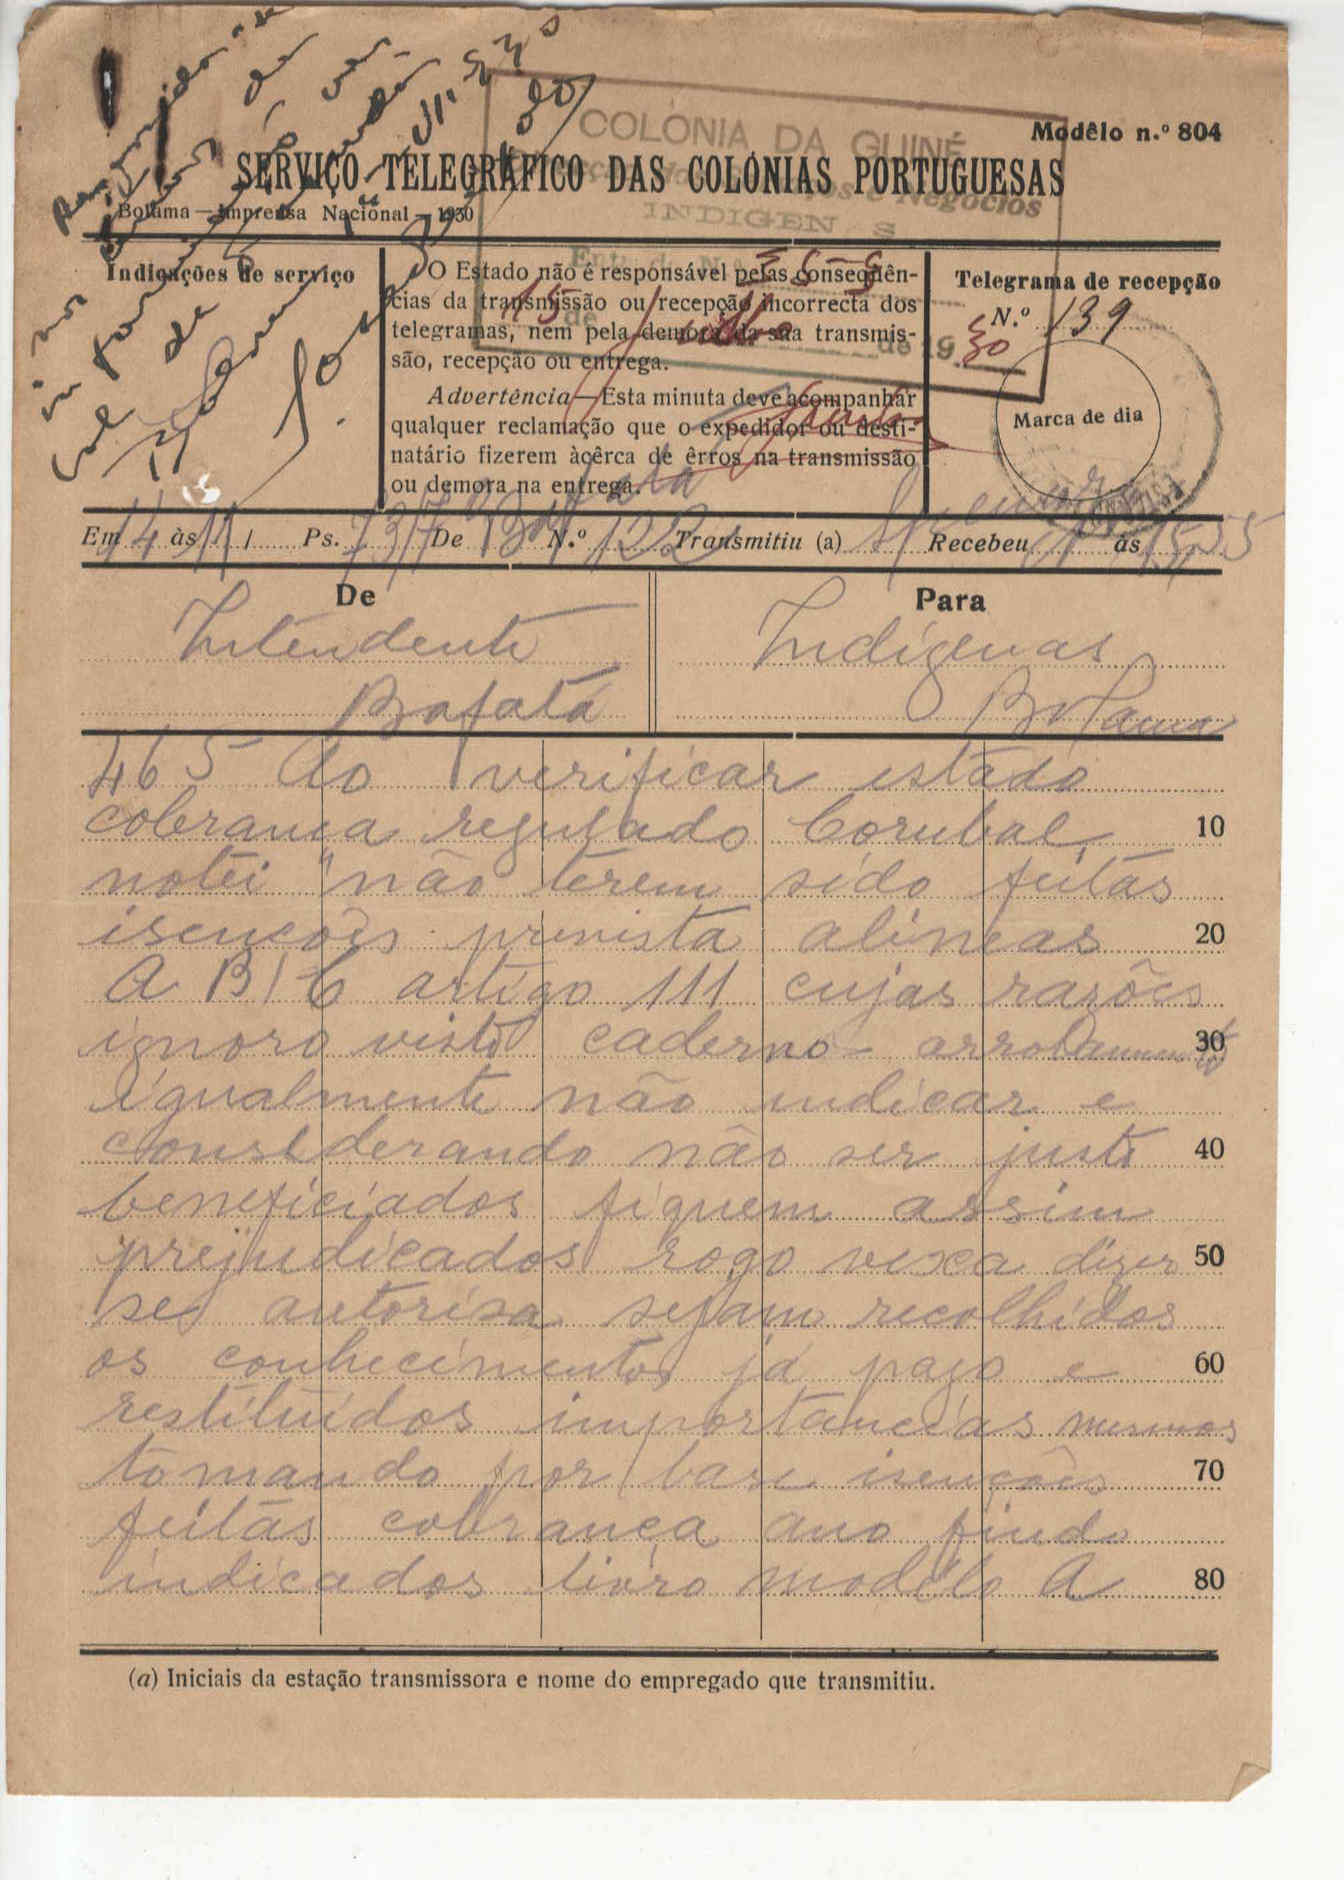 COLÓNIA DA GUINÉ
Negócios
INDIGEN S
3 5 - S
15 de Julho de 1930
Modêlo n.º 804
SERVIÇO TELEGRÁFICO DAS COLÓNIAS PORTUGUESAS
Bolama — Imprensa Nacional — 1930
Indicações de serviço
O Estado não é responsável pelas conseqüên-
cias da transmissão ou recepção incorrecta dos
telegramas, nem pela demora da sua transmis-
são, recepção ou entrega.
Advertência—Esta minuta deve acompanhar
qualquer reclamação que o expedidor ou desti-
natário fizerem àcêrca de êrros na transmissão
ou demora na entrega.
Telegrama de recepção
N.º 139
Marca de dia
Em 14 às 11 Ps. 73/7 De N.º 122 Transmitiu (a) Recebeu às 15,55
De
Para
Intendente
Indígenas
Bafatá
Bolama
465 Ao verificar estado
cobrança regulado Corubal 10
notei não terem sido feitas
isenções prevista alineas 20
A B C artigo 111 cujas razões
ignoro visto caderno arrolamento 30
igualmente não indicar e
considerando não ser justo 40
beneficiados fiquem assim
prejudicados rogo vexa dizer 50
se autorisa sejam recolhidos
os conhecimentos já pago e 60
restituidos importancias mesmos
tomando por base isenções 70
feitas cobrança ano findo
indicados livro modelo A 80
(a) Iniciais da estação transmissora e nome do empregado que transmitiu.